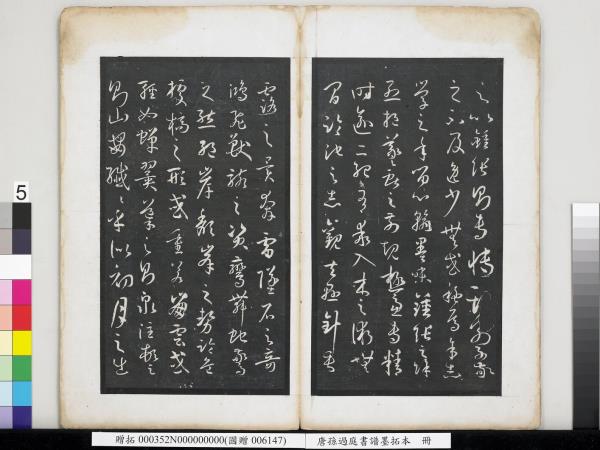 之以鍾張則專博斯別子敬
之不及逸少無或疑焉余志
學之年留心翰墨味鍾張之餘
烈挹羲獻之前規極慮專精
時逾二紀有乖入木之術無
間臨池之志觀夫懸針垂
露之異奔雷墜石之奇
鴻飛獸駭之資鸞舞蛇驚
之態絕岸頹峯之勢臨危
據槁之形或重若崩雲或
輕如蟬翼導之則泉注頓之
則山安纖纖乎似初月之出
5
贈拓 000352N000000000(國贈 006147)
唐孫過庭書譜墨拓本 冊